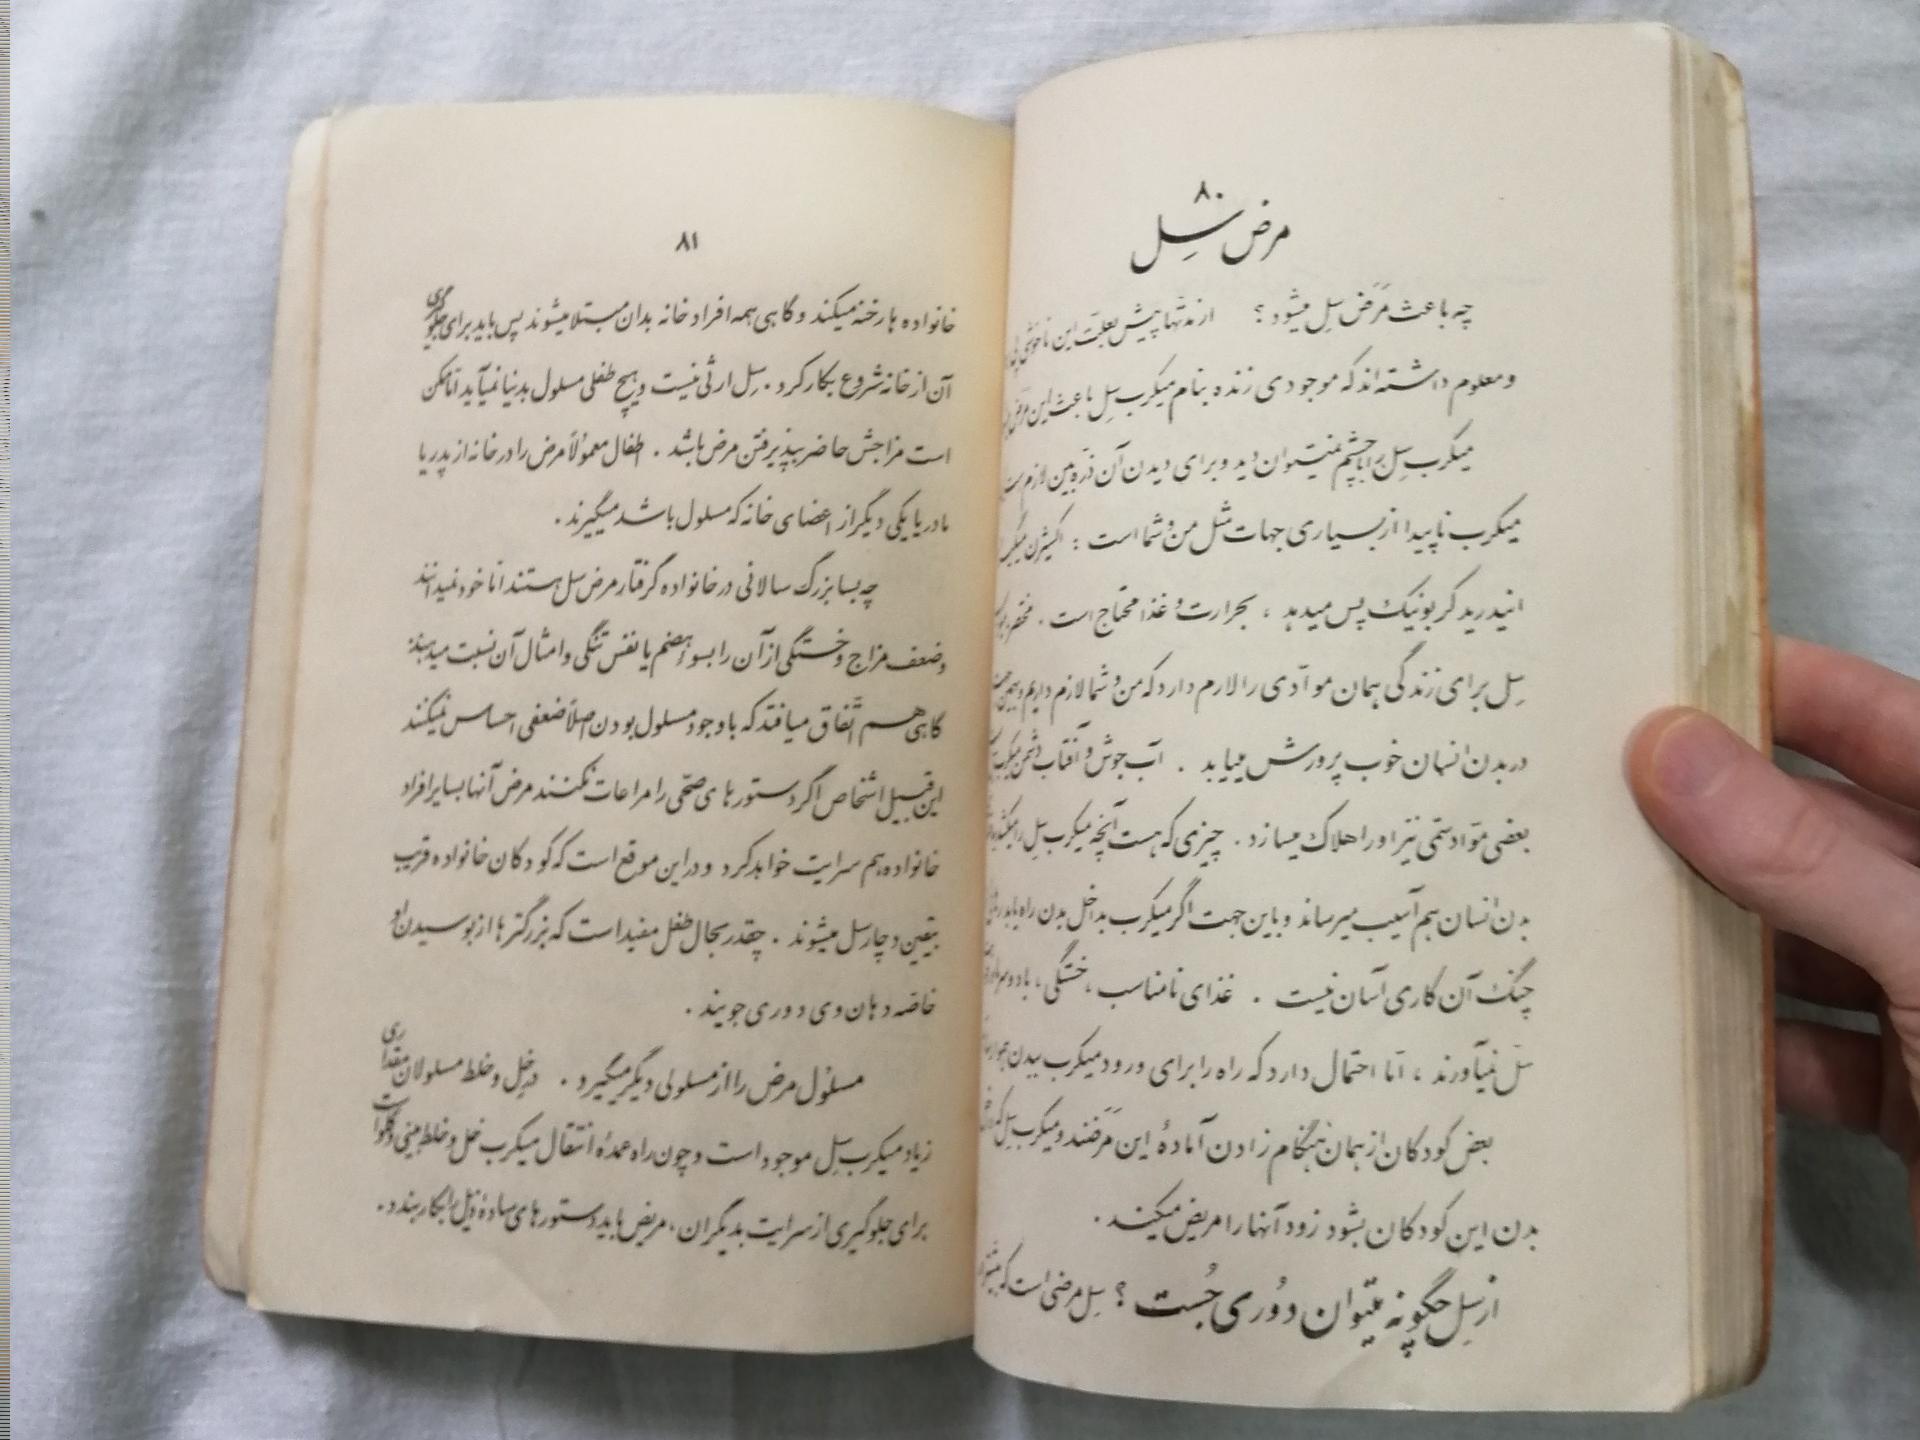 ۸۰
مرض سِل
چه باعث مَرَض سِل میشود ؟ از مدّتها پیش بعلّت این ناخوشی پی
و معلوم داشته‌اند که موجودی زنده بنام میکرب سِل باعث این مرض
میکرب سِل را با چشم نمیتوان دید و برای دیدن آن ذرّه‌بین لازم
میکرب ناپیدا از بسیاری جهات مثل من و شما است : اکسیژن میگیرد
انیدرید کربونیک پس میدهد ، بحرارت و غذا محتاج است . مختصر
سِل برای زندگی همان موادّی را لازم دارد که من و شما لازم داریم و بهمین
در بدن انسان خوب پرورش مییابد . آب جوش و آفتاب دشمن میکرب
بعضی موادّ سمّی نیز او را هلاک میسازد . چیزی که هست آنچه میکرب سِل را میکشد
بدن انسان هم آسیب میرساند و باین جهت اگر میکرب بداخل بدن راه یابد
چنگ آن کاری آسان نیست . غذای نامناسب ، خستگی ،
سل نمیآورند ، امّا احتمال دارد که راه را برای ورود میکرب ببدن
بعض کودکان از همان هنگام زادن آمادهٔ این مَرَضند و میکرب سِل که
بدن این کودکان بشود زود آنها را مریض میکند .
از سِل چگونه میتوان دُوری جُست ؟ سِل مرضی است که
۸۱
خانواده ها رخنه میکند و گاهی همه افراد خانه بدان مبتلا میشوند پس باید برای جلوگیری
آن از خانه شروع بکار کرد . سِل ارثی نیست و هیچ طفلی مسلول بدنیا نمیآید امّا ممکن
است مزاجش حاضر بپذیرفتن مرض باشد . اطفال معمولاً مرض را در خانه از پدر یا
مادر یا یکی دیگر از اعضای خانه که مسلول باشد میگیرند .
چه بسا بزرگ سالانی در خانواده گرفتار مرض سل هستند امّا خود نمیدانند
و ضعف مزاج و خستگی از آن را بسوء هضم یا نفس تنگی و امثال آن نسبت میدهند
گاهی هم اتّفاق میافتد که با وجود مسلول بودن اصلاً ضعفی احساس نمیکنند
این قبیل اشخاص اگر دستورهای صحّی را مراعات نکنند مرض آنها بسایر افراد
خانواده هم سرایت خواهد کرد و در این موقع است که کودکان خانواده قریب
بیقین دچار سل میشوند . چقدر بحال طفل مفید است که بزرگترها از بوسیدن او
خاصّه دهان وی دوری جویند .
مسلول مرض را از مسلولی دیگر میگیرد . در خِل و خلط مسلولان مقداری
زیاد میکرب سِل موجود است و چون راه عمدهٔ انتقال میکرب خل و خلط بینی و گلو است
برای جلوگیری از سرایت بدیگران ، مریض باید دستورهای سادهٔ ذیل را بکار بندد .